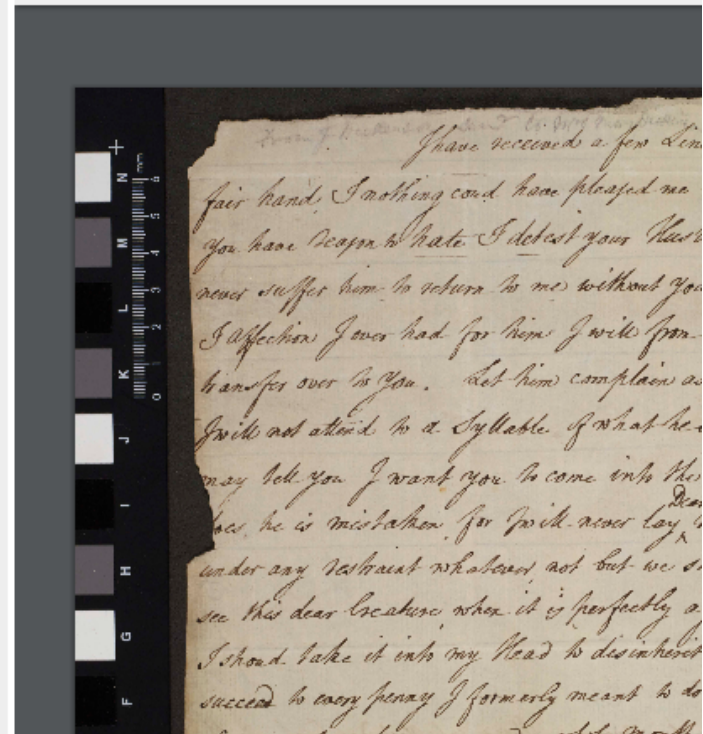 I have received a few Lin
fair hand, & nothing coud have pleased me
you have reason to hate & detest your Hus
never suffer him to return to me without you
& affection I ever had for him I will from
transfer over to you. Let him complain as
I will not attend to a Syllable of what he
may tell you I want you to come into the
Dear
does, he is mistaken, for I will never lay
under any restraint whatever, not but we s
see this dear Creature when it is perfectly a
I shoud take it into my Head to disinherit
succeed to every penny I formerly meant to do
mm
0 1 2 3 4 5 6
N
M
L
K
J
I
H
G
F